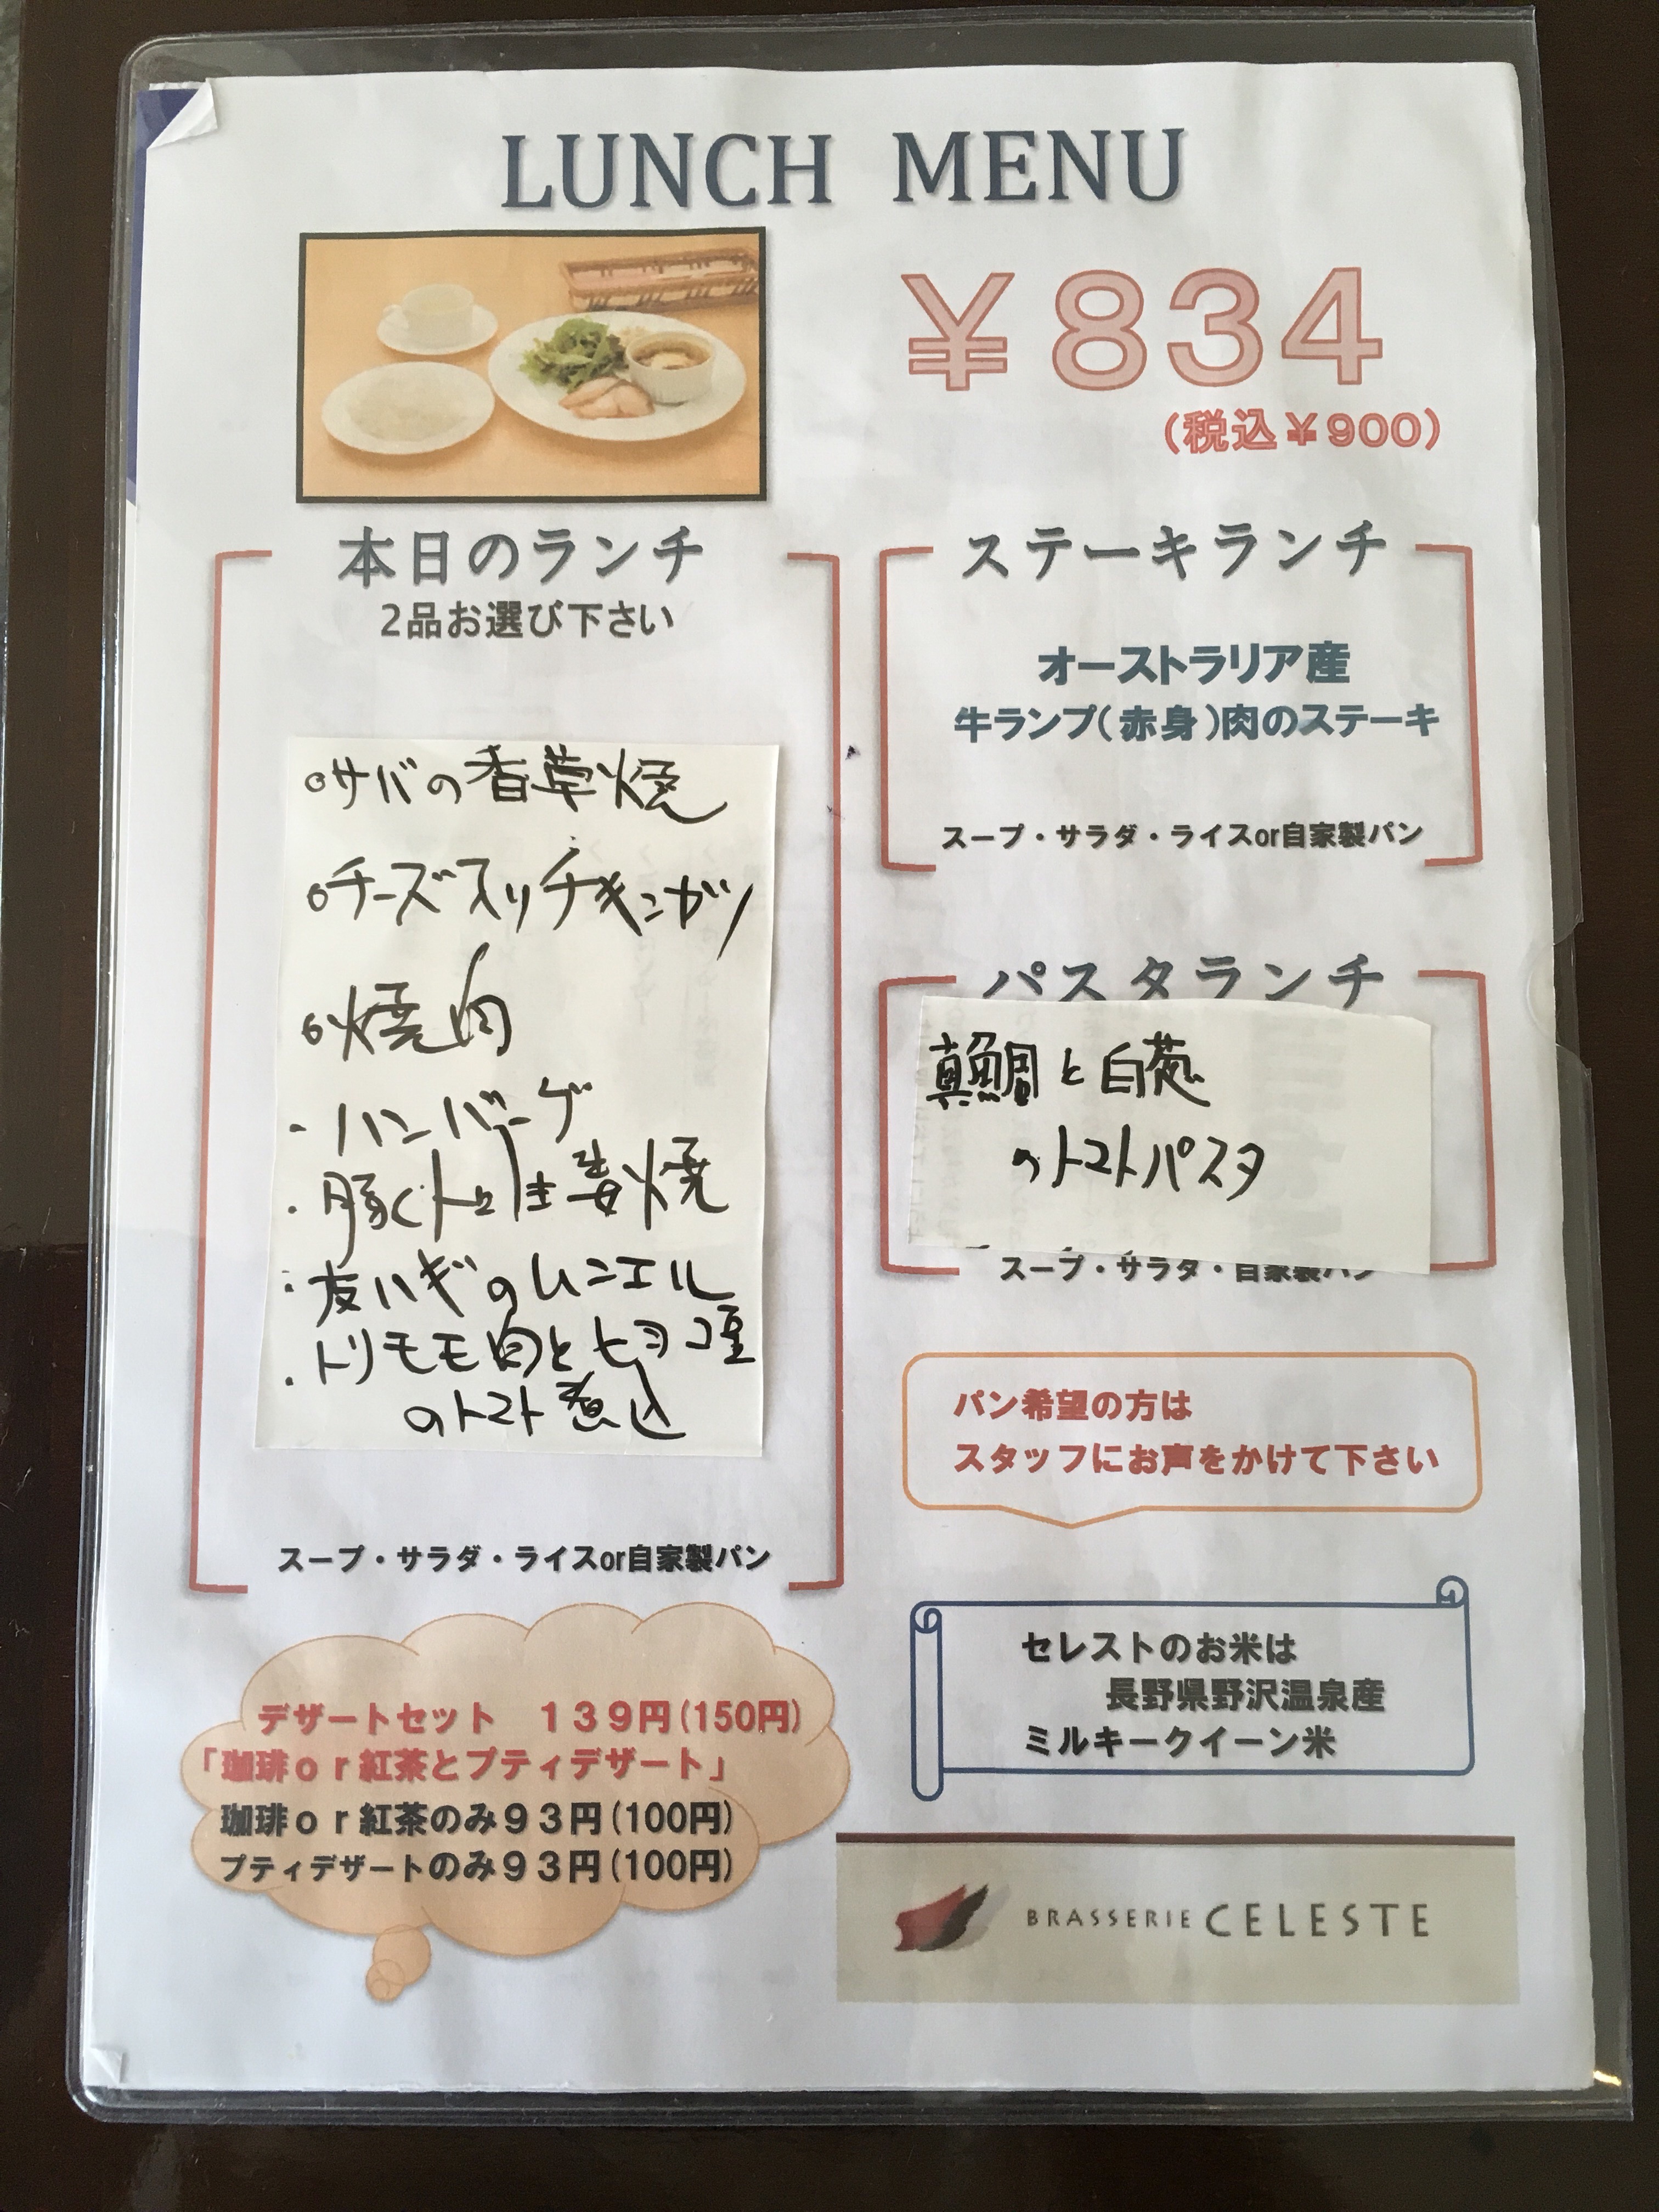 LUNCH MENU
￥834
(税込￥900)
本日のランチ
2品お選び下さい
○サバの香草焼
○チーズ入りチキンカツ
○焼肉
・ハンバーグ
・豚とトロ生姜焼
・友ハギのムニエル
・トリモモ肉とヒヨコ豆
のトマト煮込
スープ・サラダ・ライスor自家製パン
ステーキランチ
オーストラリア産
牛ランプ(赤身)肉のステーキ
スープ・サラダ・ライスor自家製パン
パスタランチ
真鯛と白葱
のトマトパスタ
スープ・サラダ・自家製パン
パン希望の方は
スタッフにお声をかけて下さい
セレストのお米は
長野県野沢温泉産
ミルキークイーン米
デザートセット １３９円(150円)
「珈琲ｏｒ紅茶とプティデザート」
珈琲ｏｒ紅茶のみ９３円(100円)
プティデザートのみ９３円(100円)
BRASSERIE CELESTE